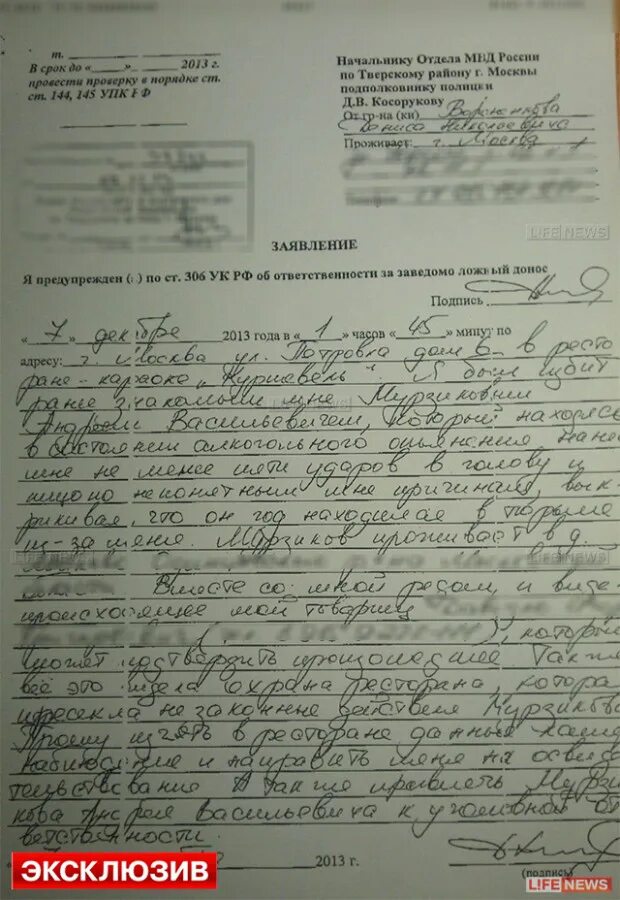 т.
В срок до «____»________2013 г.
провести проверку в порядке ст.
ст. 144, 145 УПК РФ
Начальнику Отдела МВД России
по Тверскому району г. Москвы
подполковнику полиции
Д.В. Косорукову
От гр-на (ки) Вороненкова
Дениса Николаевича
Проживает: г. Москва
LIFE NEWS
ЗАЯВЛЕНИЕ
Я предупрежден ( ) по ст. 306 УК РФ об ответственности за заведомо ложный донос
Подпись
« 7 » декабре 2013 года в « 1 » часов « 45 » минут по
адресу: г. Москва ул. Петровка дом 6 в ресто
ране-караоке "Куршавель". Я был избит
ранее знакомым мне Мурзиковым
Андреем Васильевичем, который находясь
в состоянии алкогольного опьянения нанес
мне не менее пяти ударов в голову и
лицо по непонятным мне причинам, вык-
рикивая, что он год находился в тюрьме
из-за меня. Мурзиков проживает в д.
LIFE NEWS
Вместе со мной рядом, и виде
происходящее мой товарищ
), который
может подтвердить произошедшее Также
всё это видела охрана ресторана, котора
пресекла незаконные действия Мурзикова
Прошу изъять в ресторане данные камер
наблюдение и направить меня на освиде
тельствование А также привлечь Мурзи
кова Андрея Васильевича к уголовной от
ветственности.
2013 г.
(подпись)
ЭКСКЛЮЗИВ
LIFE NEWS